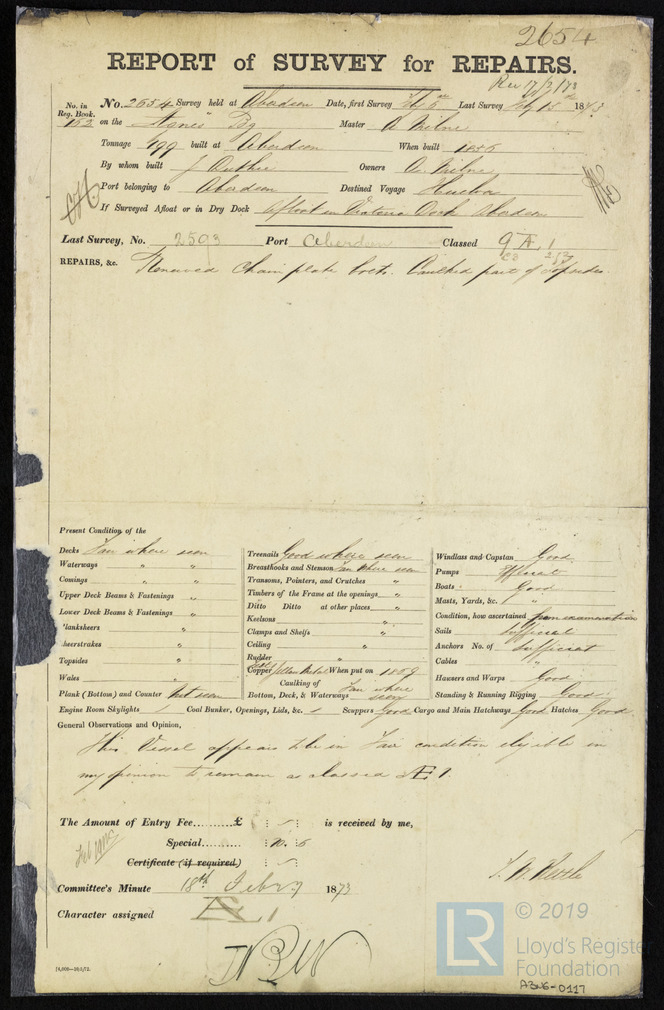 2654
REPORT of SURVEY for REPAIRS.
Rec 17/2/73
No. in Reg. Book. 153
No. 2654 Survey held at Aberdeen Date, first Survey Feb 5th Last Survey Feb 15th 1873
on the "Agnes" Bg Master A Milne
Tonnage 199 built at Aberdeen When built 1856
By whom built J Duthie Owners A. Milne
Port belonging to Aberdeen Destined Voyage Huelva
If Surveyed Afloat or in Dry Dock Afloat in Victoria Dock Aberdeen
Last Survey, No. 2593 Port Aberdeen Classed Æ 1
REPAIRS, &c. Renewed Chain plate bolts. Caulked part of Topsides.
Present Condition of the
Decks Fair where seen
Waterways " "
Comings " "
Upper Deck Beams & Fastenings "
Lower Deck Beams & Fastenings "
lanksheers "
heerstrakes "
Topsides "
Wales "
Plank (Bottom) and Counter Not seen
Treenails Good where seen
Breasthooks and Stemson Fair where seen
Transoms, Pointers, and Crutches "
Timbers of the Frame at the openings "
Ditto Ditto at other places "
Keelsons "
Clamps and Shelfs "
Ceiling "
Rudder "
Copper Yellow Metal When put on 1869
Caulking of Bottom, Deck, & Waterways Fair where seen
Windlass and Capstan Good
Pumps Efficient
Boats Good
Masts, Yards, &c. "
Condition, how ascertained from examination
Sails Sufficient
Anchors No. of Sufficient
Cables "
Hawsers and Warps Good
Standing & Running Rigging Good
Engine Room Skylights Coal Bunker, Openings, Lids, &c. Scuppers Good Cargo and Main Hatchways Good Hatches Good
General Observations and Opinion,
This Vessel appears to be in Fair condition eligible in
my opinion to remain as classed Æ 1.
The Amount of Entry Fee......... £ : - : is received by me,
Special.........
Certificate (if required.) : - :
Committee's Minute 18th Feby 1873
Character assigned Æ 1
© 2019
LR
Lloyd's Register
Foundation
A3W6-0117